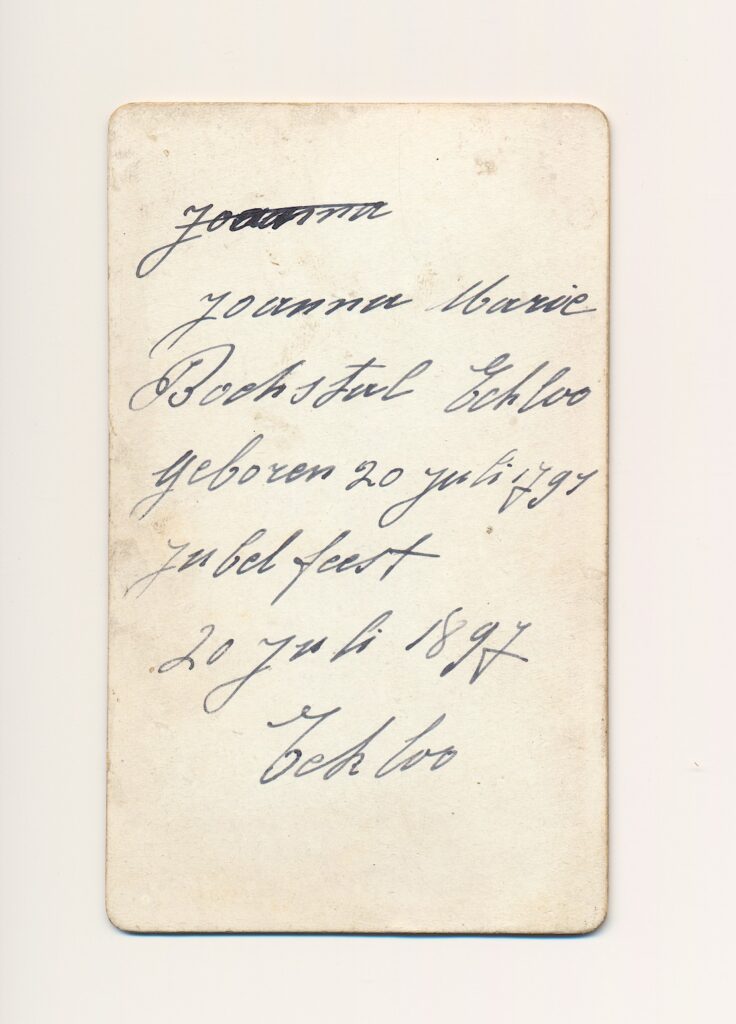 Joanna
Joanna Marie
Bockstal Eekloo
geboren 20 juli 1797
jubel feest
20 juli 1897
Eekloo